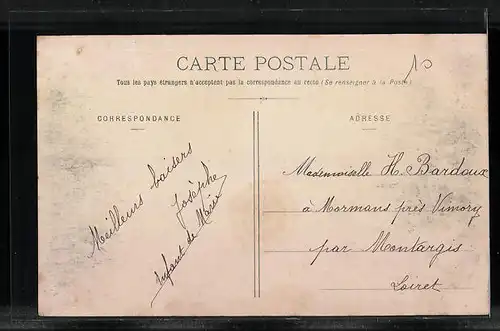 CARTE POSTALE
Tous les pays étrangers n'acceptent pas la correspondance au recto (Se renseigner à la Poste)
10
CORRESPONDANCE
Meilleurs baisers
Josèphe
Enfant de Marie
ADRESSE
Mademoiselle H. Bardoux
à Mormans près Vimory
par Montargis
Loiret